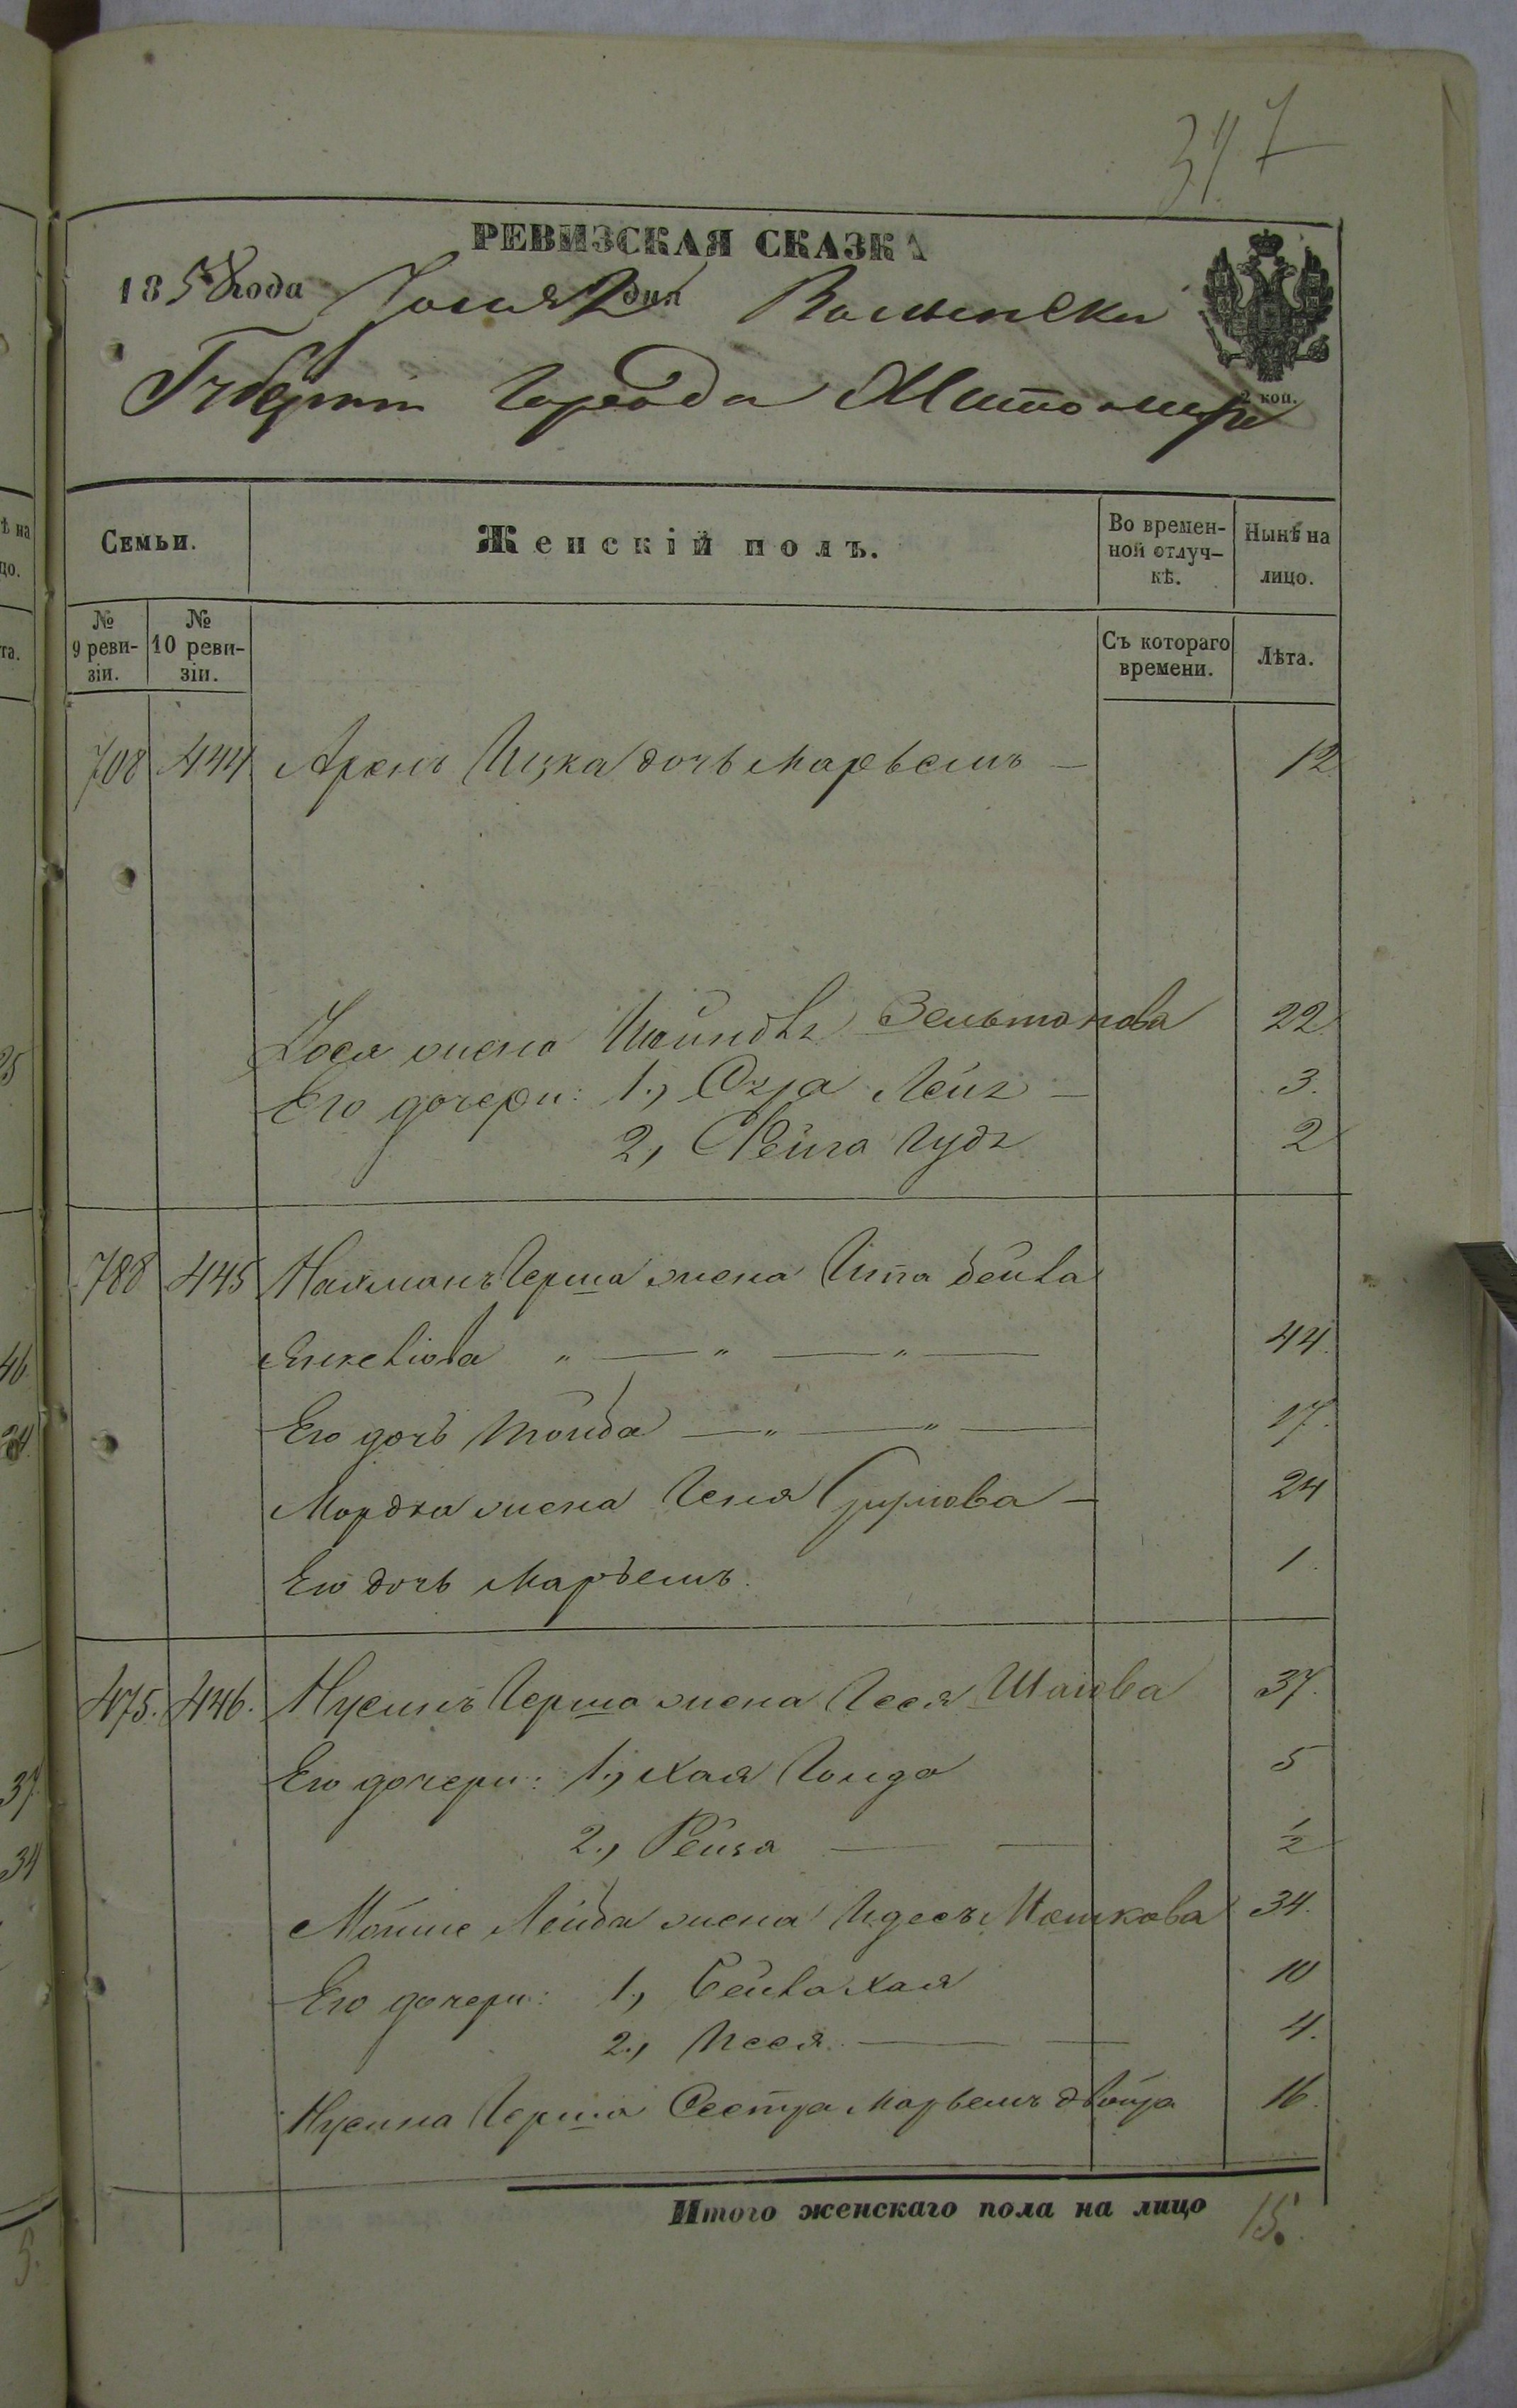 347
РЕВИЗСКАЯ СКАЗКА
1858 года Iюня 2 дня Волынской
Губернiи Города Житомира
2 коп.
Семьи.
Женскій полъ.
Во времен-
ной отлуч-
кѣ.
Нынѣ на
лицо.
№
9 реви-
зіи.
№
10 реви-
зіи.
Съ котораго
времени.
Лѣта.
708 444 Аренъ Ицка дочь Марьемъ — 12
Iося жена Шейндля Зельманова 22
Его дочери: 1., Сура Лея — 3.
2, Фейга 2
788 445 Нахманъ Герша жена Ита Бейла
Янкелiова " — " — " — 44.
Его дочь Тойба — " — " — 17.
Мордка жена Геня Срулева — 24
Его дочь Марьемъ. 1.
475. 446. Нусинъ Герша жена Песя Шаiова 37.
Его дочери: 1., Хая Голда 5
2., Рейза — — 1/2
Мойше Лейба жена Идесъ Мошкова 34.
Его дочери: 1, Бейла Хая 10
2., Песя. — — 4.
Нусина Герша Сестра Марьемъ Двойра 16.
Итого женскаго пола на лицо 15.